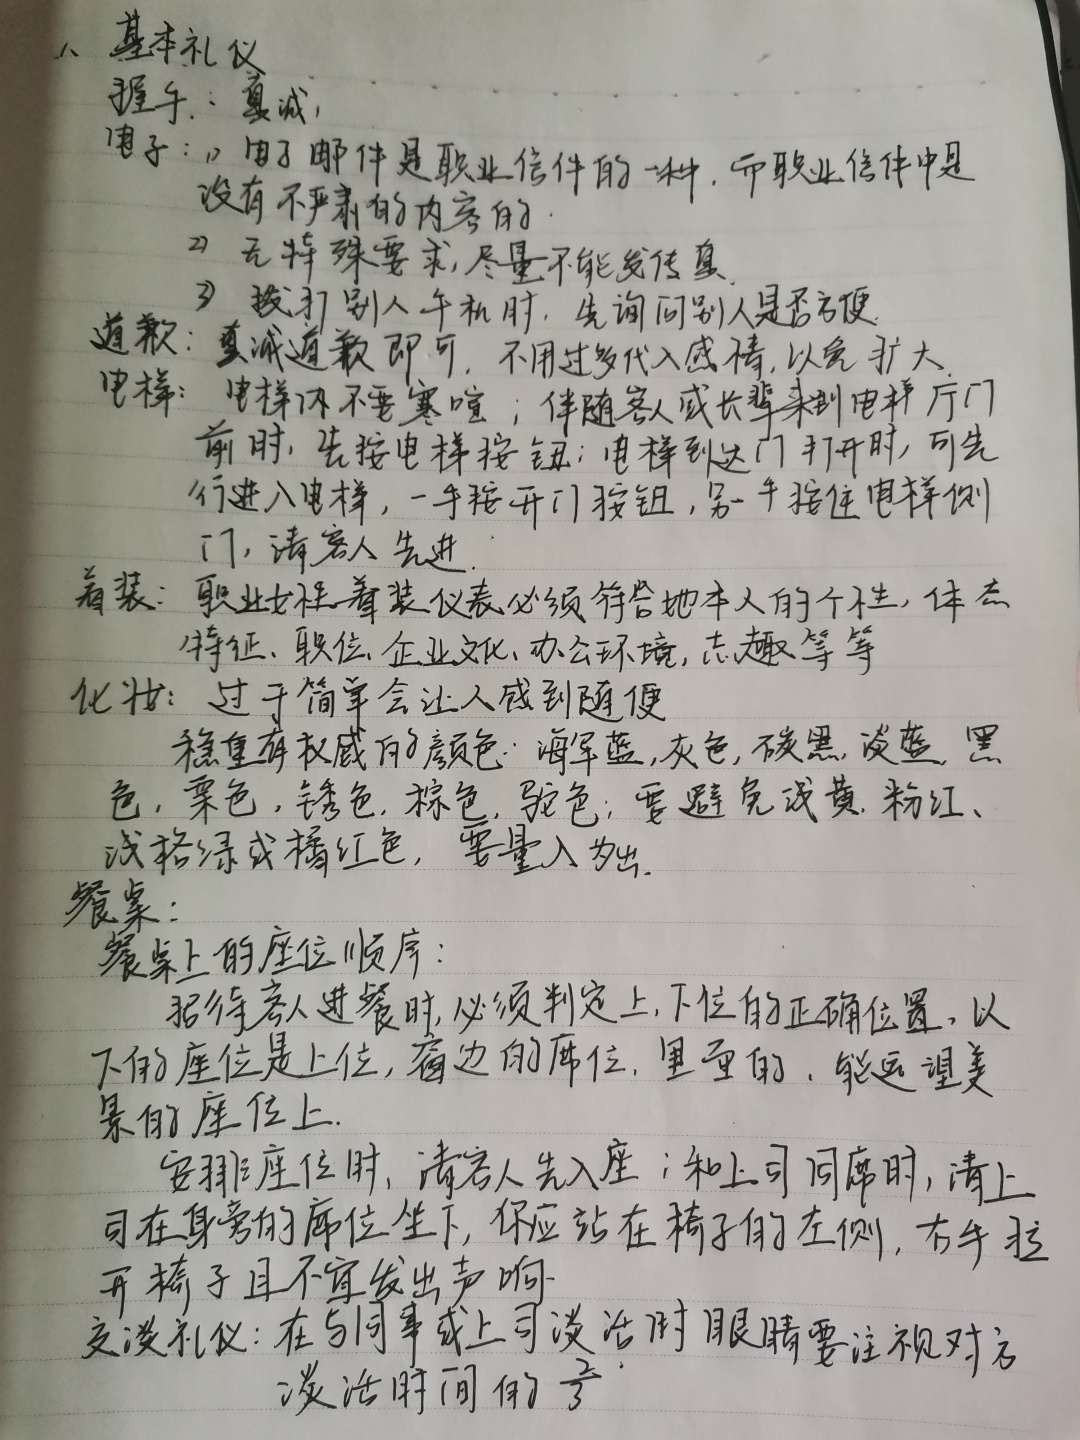 1、基本礼仪
握手：真诚，
电子：1）电子邮件是职业信件的一种，而职业信件中是
没有不严肃的内容的.
2）无特殊要求，尽量不能发传真.
3）拨打别人手机时，先询问别人是否方便.
道歉：真诚道歉即可，不用过多代入感情，以免扩大.
电梯：电梯内不要寒喧；伴随客人或长辈来到电梯厅门
前时，先按电梯按钮；电梯到达门打开时，可先
行进入电梯，一手按开门按钮，另一手按住电梯侧
门，请客人先进.
着装：职业女性着装仪表必须符合她本人的个性，体态
特征、职位、企业文化、办公环境，志趣等等
化妆：过于简单会让人感到随便
稳重有权威的颜色：海军蓝，灰色，碳黑，淡蓝，黑
色，栗色，锈色，棕色，驼色；要避免浅黄、粉红、
浅格绿或橘红色，要量入为出.
餐桌：
餐桌上的座位顺序：
招待客人进餐时，必须判定上、下位的正确位置、以
下的座位是上位，窗边的席位，里面的、能远望美
景的座位上.
安排座位时，请客人先入座；和上司同席时，请上
司在身旁的席位坐下，你应站在椅子的左侧，右手拉
开椅子且不宜发出声响.
交谈礼仪：在与同事或上司谈话时眼睛要注视对方
谈话时间的2/3.